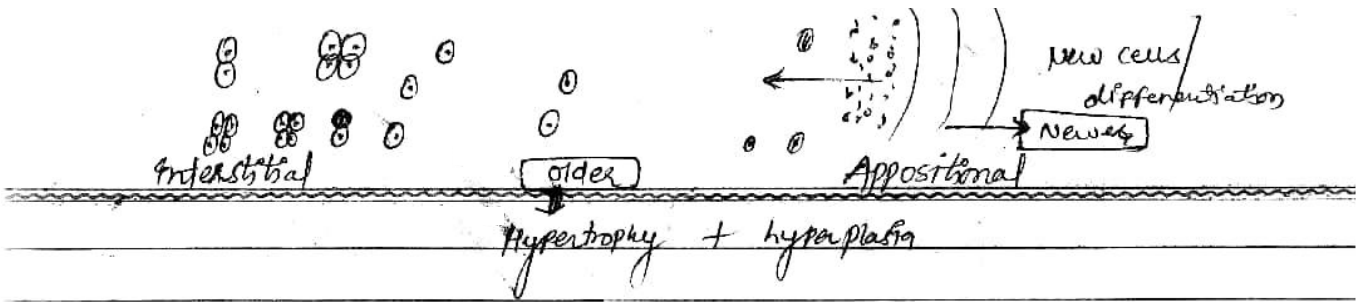 New cells
differentiation
Newer
Interstitial older Appositional
Hypertrophy + hyperplasia